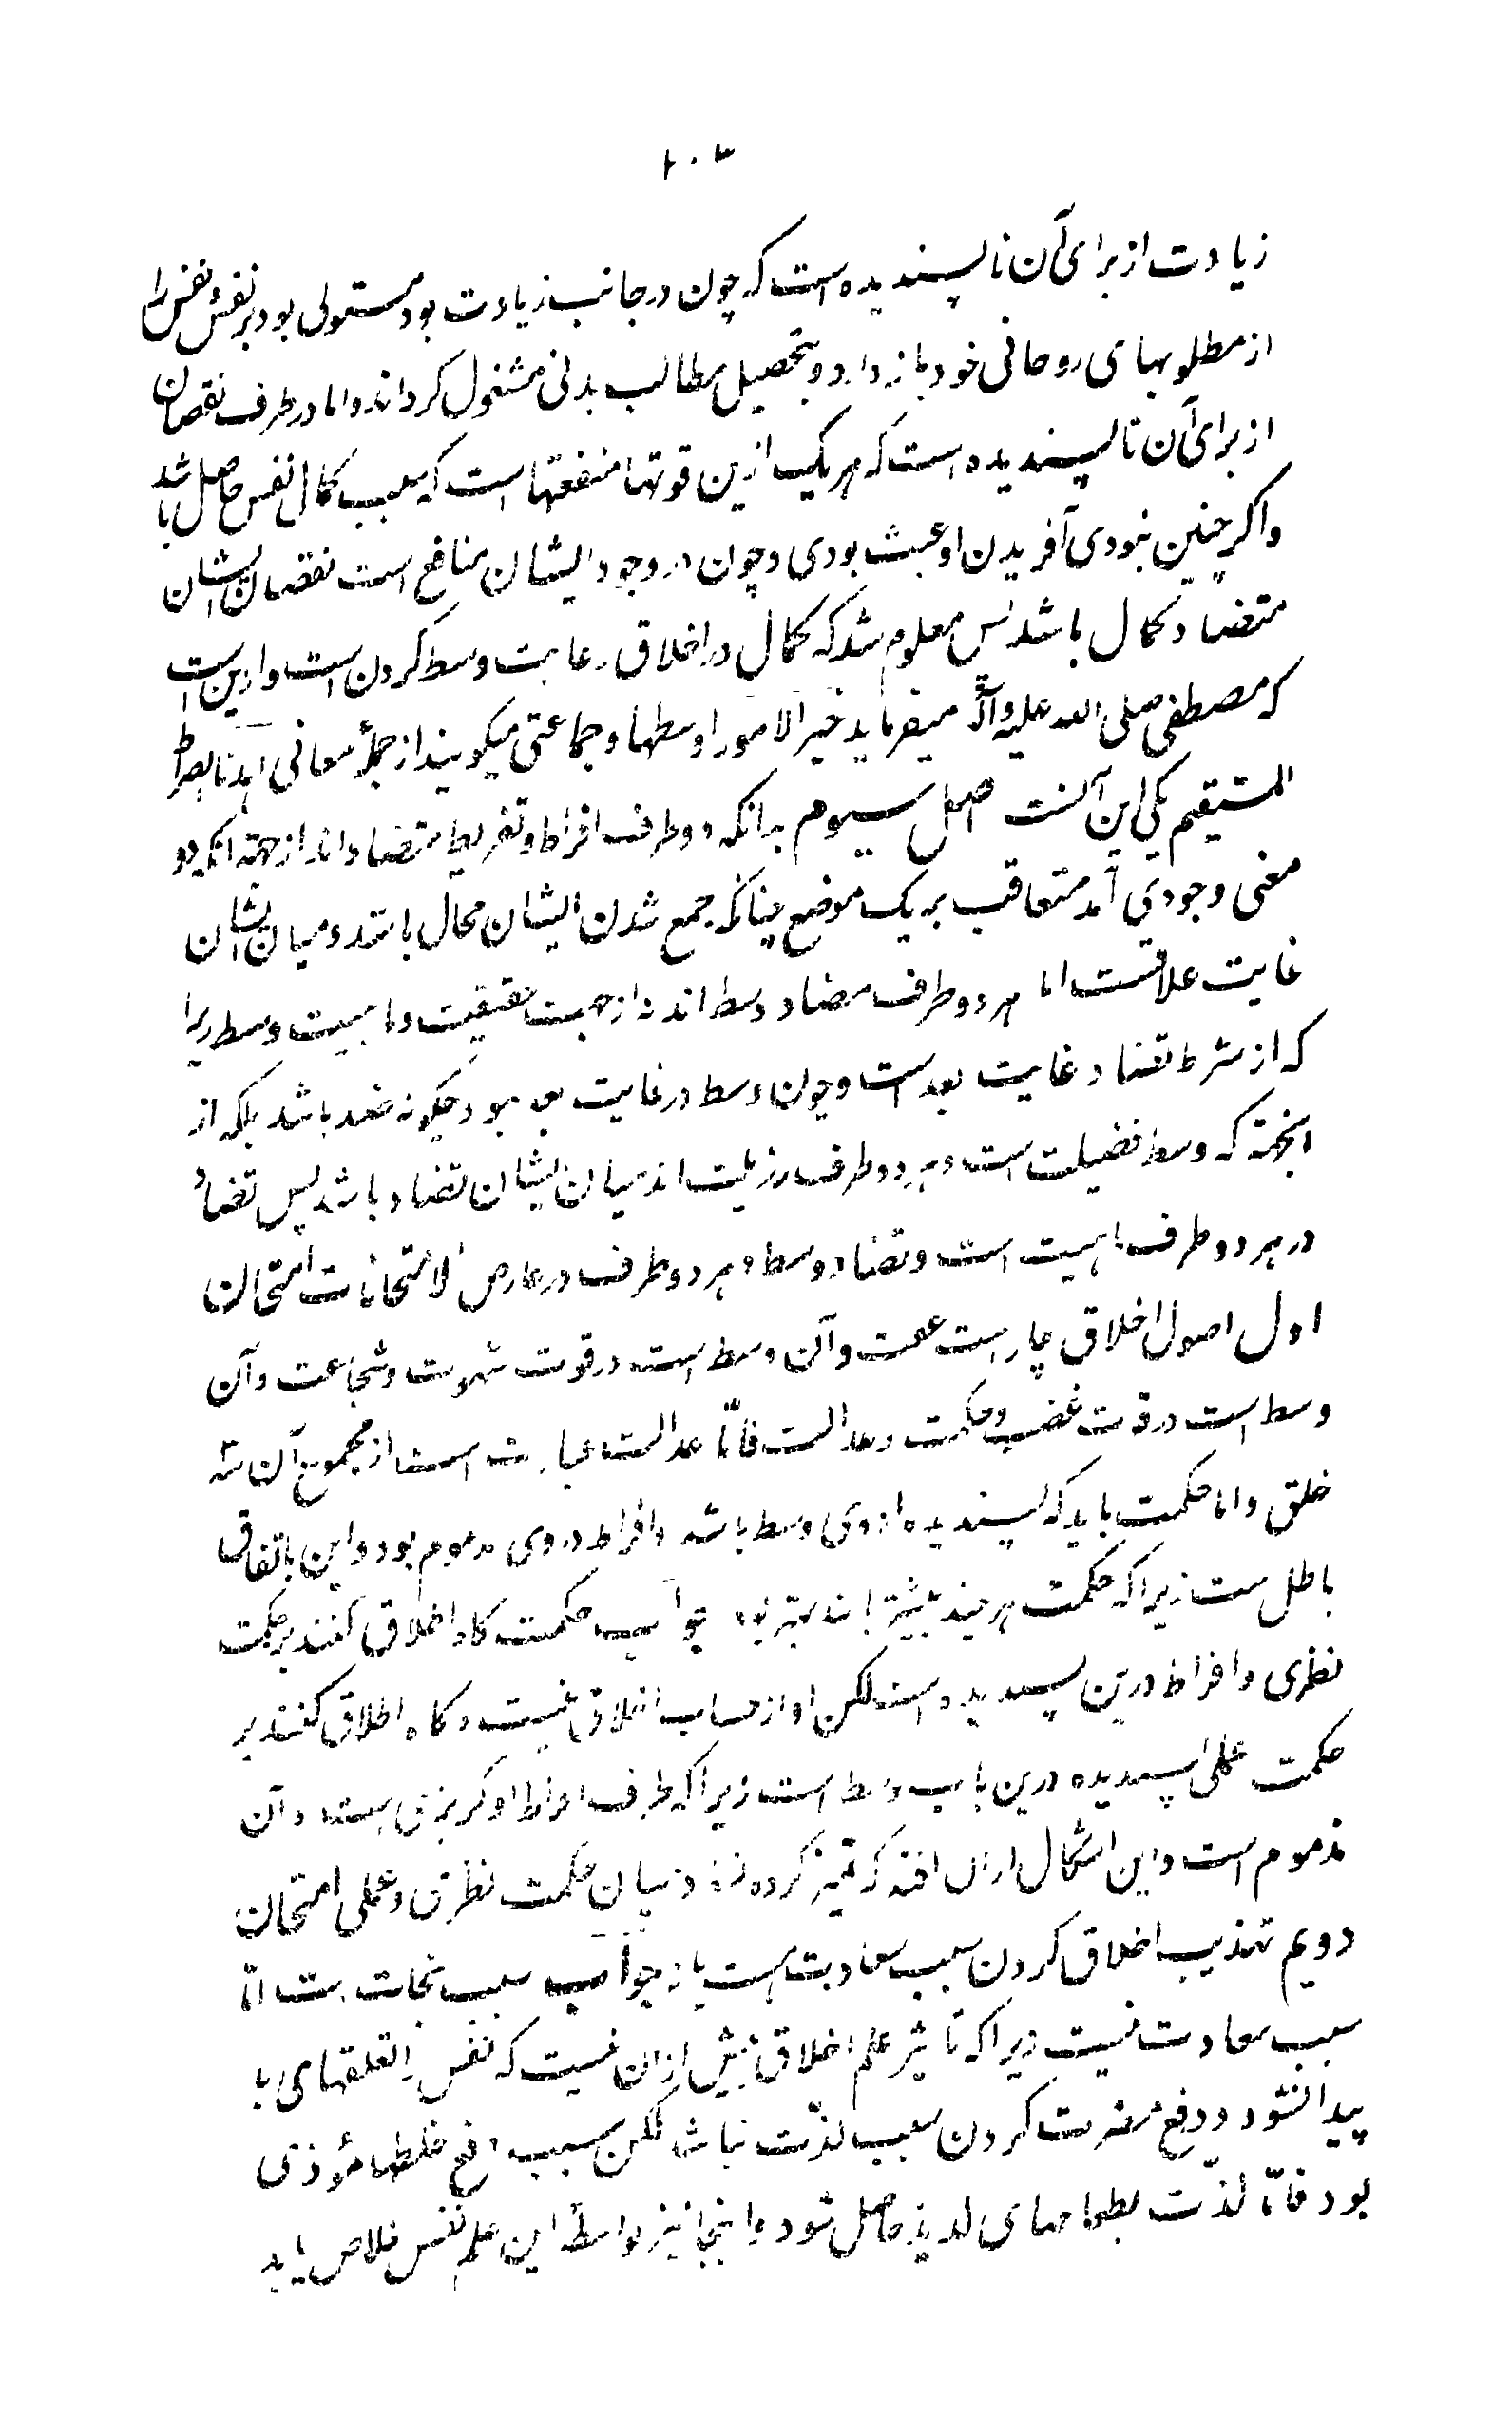 ۲۰۳
زیادت از برای آن ناپسندیده است که چون در جانب زیادت بود مستولی بود بر نفس و نفس را
از مطلوبهای روحانی خود باز دارد و بتحصیل مطالب بدنی مشغول کرداند و اما در طرف نقصان
از برای آن ناپسندیده است که هر یک ازین قوتها منفعتها است که سبب کمال نفس حاصل باشد
واکر چنین نبودی آفریدن او عبث بودی و چون در وجود ایشان منافع است نقصان ایشان
متضاد کمال باشد پس معلوم شد که کمال در اخلاق رعایت وسط کردن است و ازین است
که مصطفی صلی الله علیه وآله میفرماید خیر الامور اوسطها و جماعتی میکویند از جملهٔ معانی اهدنا الصراط
المستقیم یکی این آنست اصل سیوم بدانکه دو طرف افراط و تفریط متضاد اند از جهة انکه دو
معنی وجودی آمد متعاقب بر یک موضع چنانکه جمع شدن ایشان محال باشد و میان ایشان
غایت علاقست اما هر دو طرف مضاد وسط اند نه از جهت حقیقت و ماهیت وسط زیرا
که از شرط تضاد غایت بعد است و چون وسط در غایت بعد نبود چکونه ضد باشد بلکه از
انجهة که وسط فضیلت است و هر دو طرف رذیلت اند میان ایشان تضاد باشد پس تضاد
در هر دو طرف ماهیت است و تضاد وسط و هر دو طرف در عارض الامتحانات امتحان
اول اصول اخلاق چار است عفت و آن وسط است در قوت شهوت و شجاعت و آن
وسط است در قوت غضب و حکمت و عدالت فامّا عدالت عبارت است از مجموع آن سه
خلق و اما حکمت باید که پسندیده از وی وسط باشد و افراط در وی مذموم بود و این باتفاق
باطل ست زیرا که حکمت هر چند بیشتر باشد بهتر بود جواب حکمت کاه اطلاق کنند بر حکمت
نظری و افراط درین پسندیده است لکن او از حساب اخلاق نیست و کاه اطلاق کنند بر
حکمت عملی پسندیده درین باب وسط است زیرا که طرف افراط او کربزی است و آن
مذموم است و این اشکال ازان افتد که تمیز کرده نشد میان حکمت نظری و عملی امتحان
دویم تهذیب اخلاق کردن سبب سعادت است یا نه جواب سبب نجات ست امّا
سبب سعادت نیست زیرا که تاثیر علم اخلاق بیش ازان نیست که نفس را تعلقهای با
پیدا نشود و دفع مضرت کردن سبب لذّت نباشد لکن سبب دفع خلطهاء موذی
بود فامّا لذّت بطعامهای لذیذ حاصل شود و اینجا نیز بواسطهٔ این علم نفس خلاص یابد